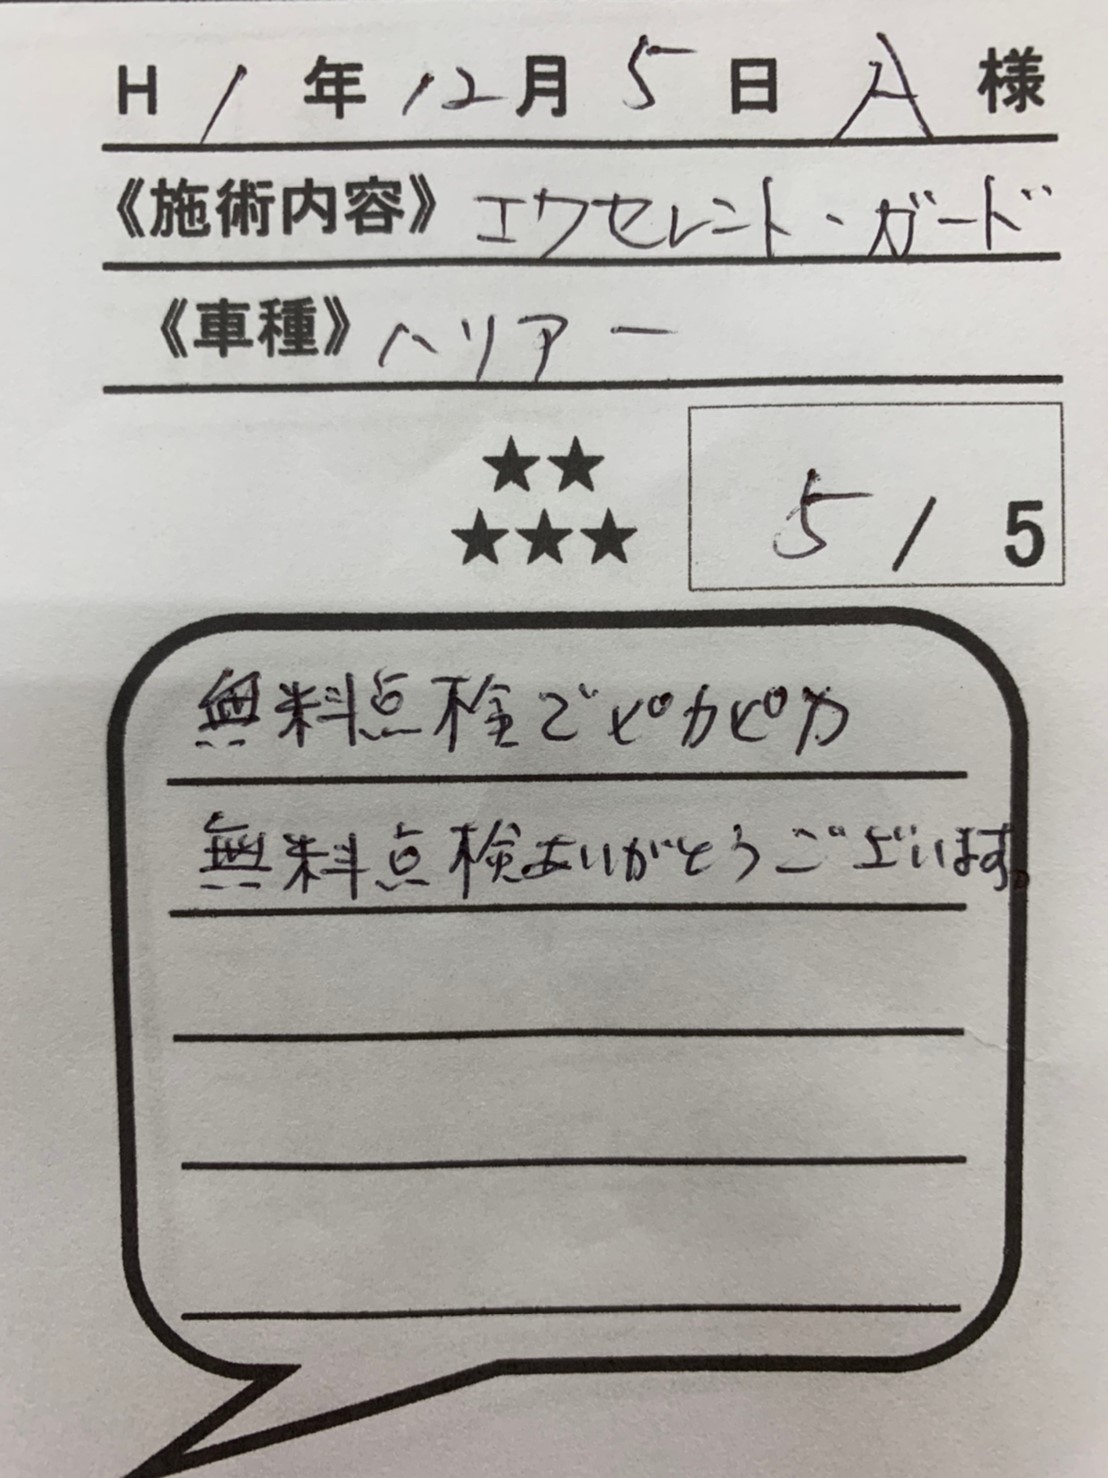 H 1 年 12 月 5 日 A 様
《施術内容》 エクセレント・ガード
《車種》 ハリアー
★★
★★★
5 / 5
無料点検でピカピカ
無料点検ありがとうございます。